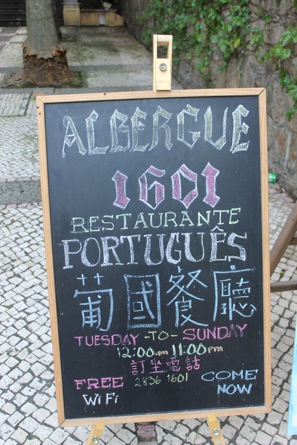 ALBERGUE
1601
RESTAURANTE
PORTUGUÊS
葡國餐廳
TUESDAY -TO- SUNDAY
12:00pm 11:00pm
訂坐電話
2836 1601
FREE
WiFi
COME
NOW